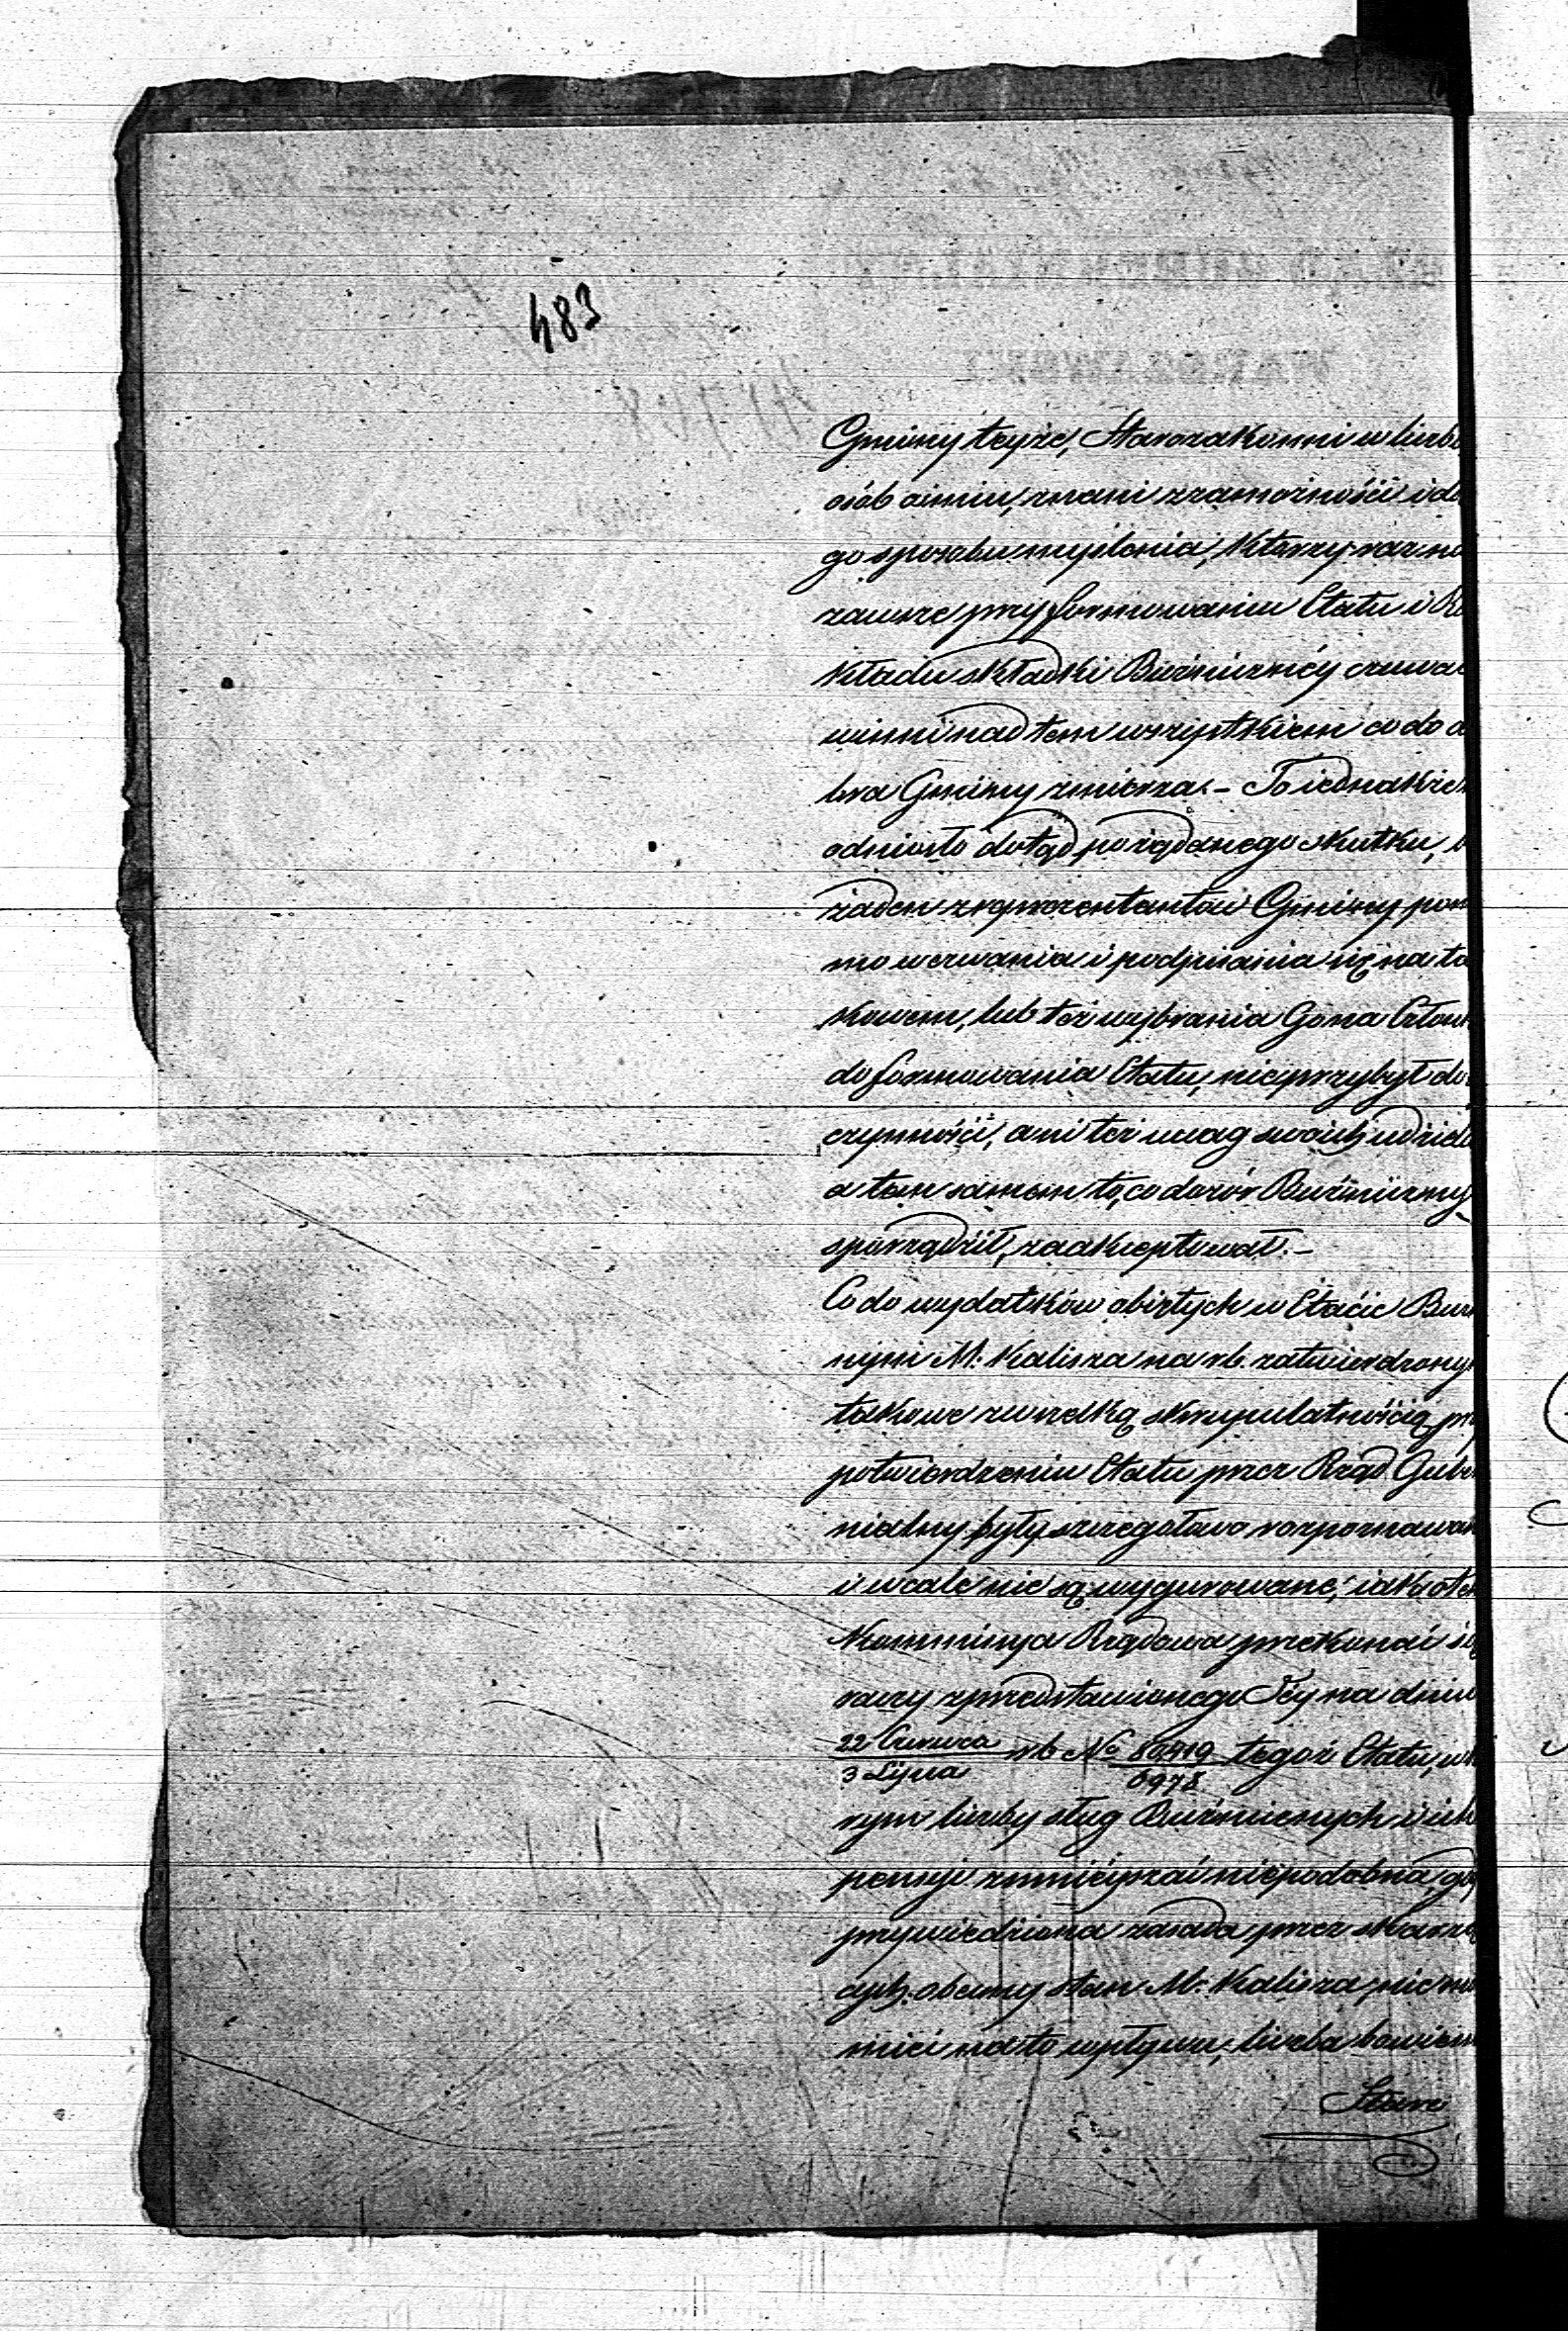 483
Gminy teyże, Starozakonni w liczb
osób ośmiu, znani z zamożności i do
go sposobu myślenia, którzy raz na
zawsze przy formowaniu Etatu i Ro
kładu składki Bużniczney czuwać
winni nad tem wszystkiem co do do
bra Gminy zmierza. – To iednakże n
odniosło dotąd pożądanego skutku, b
żaden z reprezentantów Gminy, pom
mo wezwania i podpisania się na ta
kowem, lub też wybrania Go na Człon
do formowania Etatu, nieprzybył do
czynności, ani też uwag swoich udziel
a tem samem to, co dozór Bużniczny
sporządził, zaakceptował. –
Co do wydatków obiętych w Etacie Buż
nym M. Kalisza na r.b. zatwierdzony
takowe z wszelką skrupulatnością, prz
potwierdzeniu Etatu przez Rząd Guber
nialny były szczegółowo rozpoznawan
i wcale nie są wygurowane, iak o tem
Kommissya Rządowa przekonać się
raczy z przedstawionego Jey na dniu
22 Czerwca / 3 Lipca r.b. No 80419 / 6978 tegoż Etatu, w
rym liczby sług Bużnicznych i ich
pensyi zmnieyszać niepodobna, gdy
przywiedziona zasada przez skarżą
cych, obecny stan M. Kalisza, nie mo
mieć na to wpływu, liczba bowiem
Staro